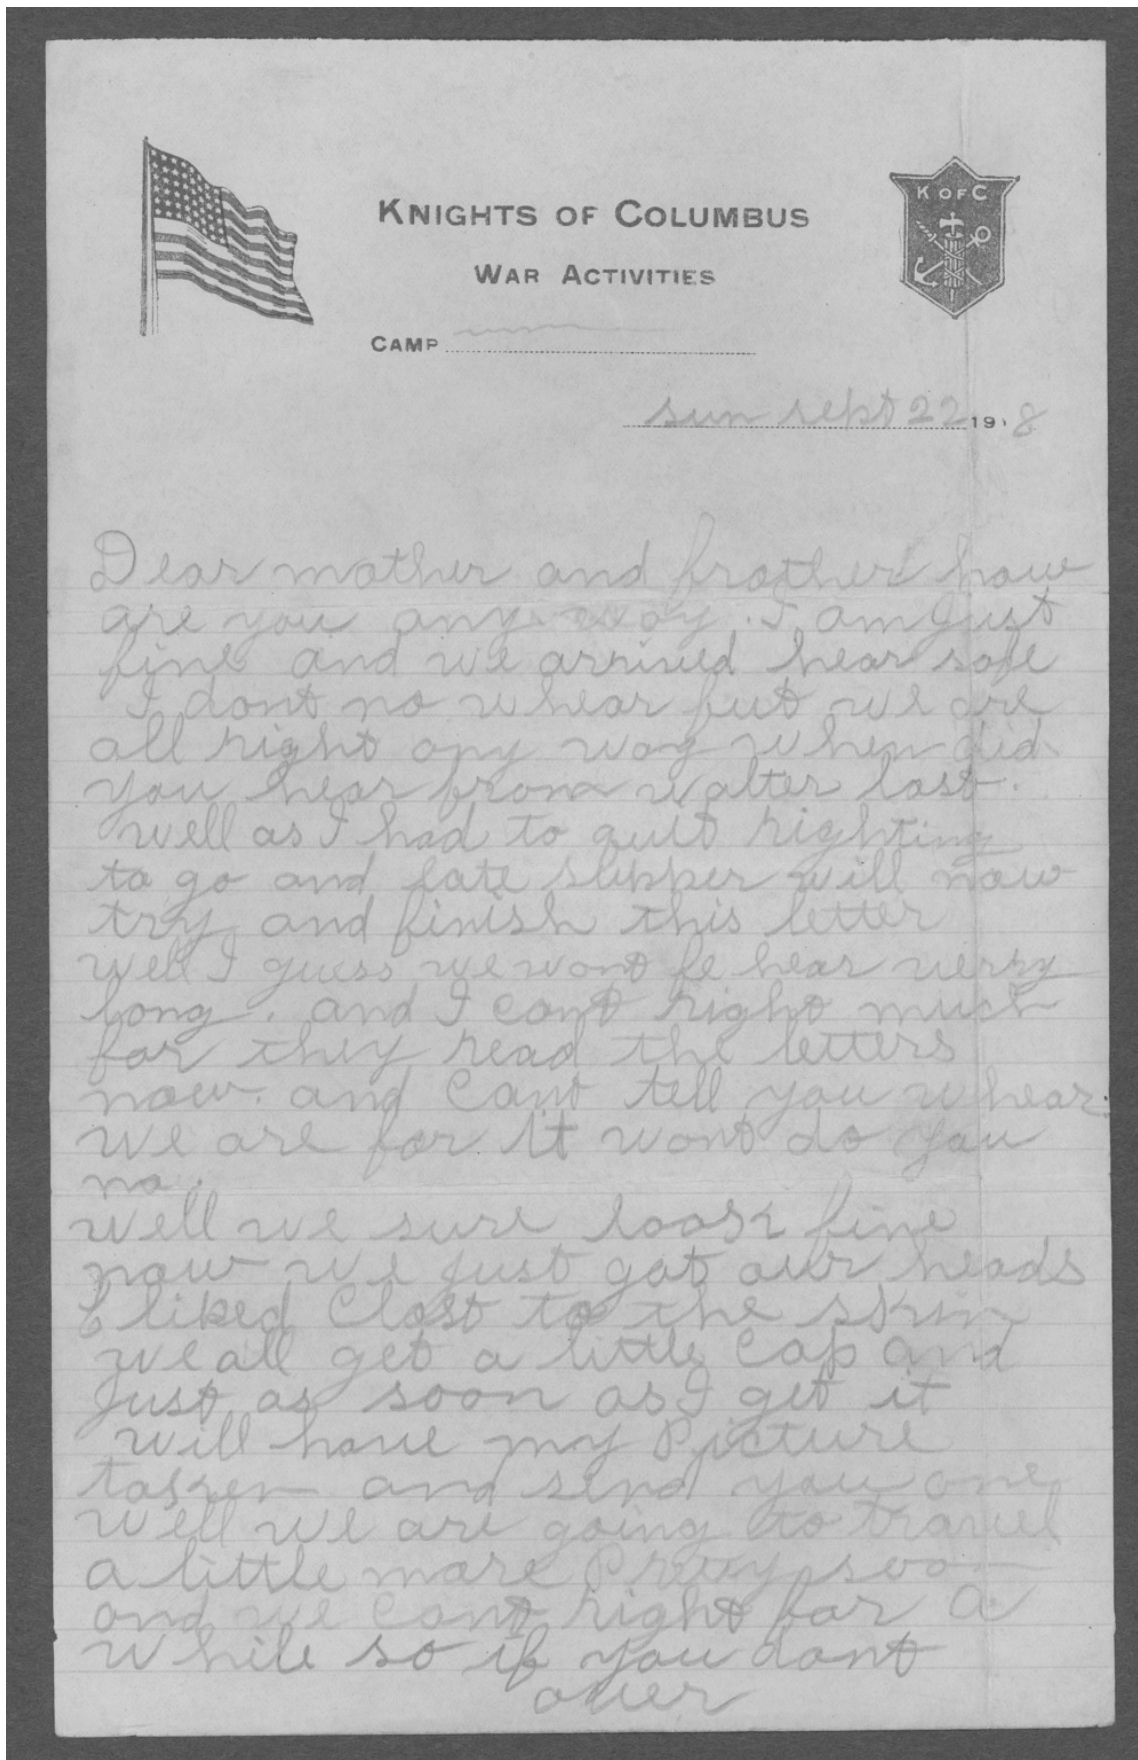 K OF C
KNIGHTS OF COLUMBUS
WAR ACTIVITIES
CAMP
sun sept 22 1918
Dear mother and brother how
are you any way. I am Just
fine and we arrived hear safe
I dont no whear but we are
all right any way when did
you hear from walter last.
well as I had to quit righting
to go and eate supper will now
try and finish this letter
well I guess we wont be hear verry
long. and I cant right much
for they read the letters
now. and Cant tell you whear
we are for it wont do you
no.
well we sure look fine
now we Just got our heads
Cliked Clost to the skin
we all get a little Cap and
Just as soon as I get it
will have my Picture
taken and send you one
well we are going to travel
a little more Prety soon
and we Cant right for a
while so if you dont
over